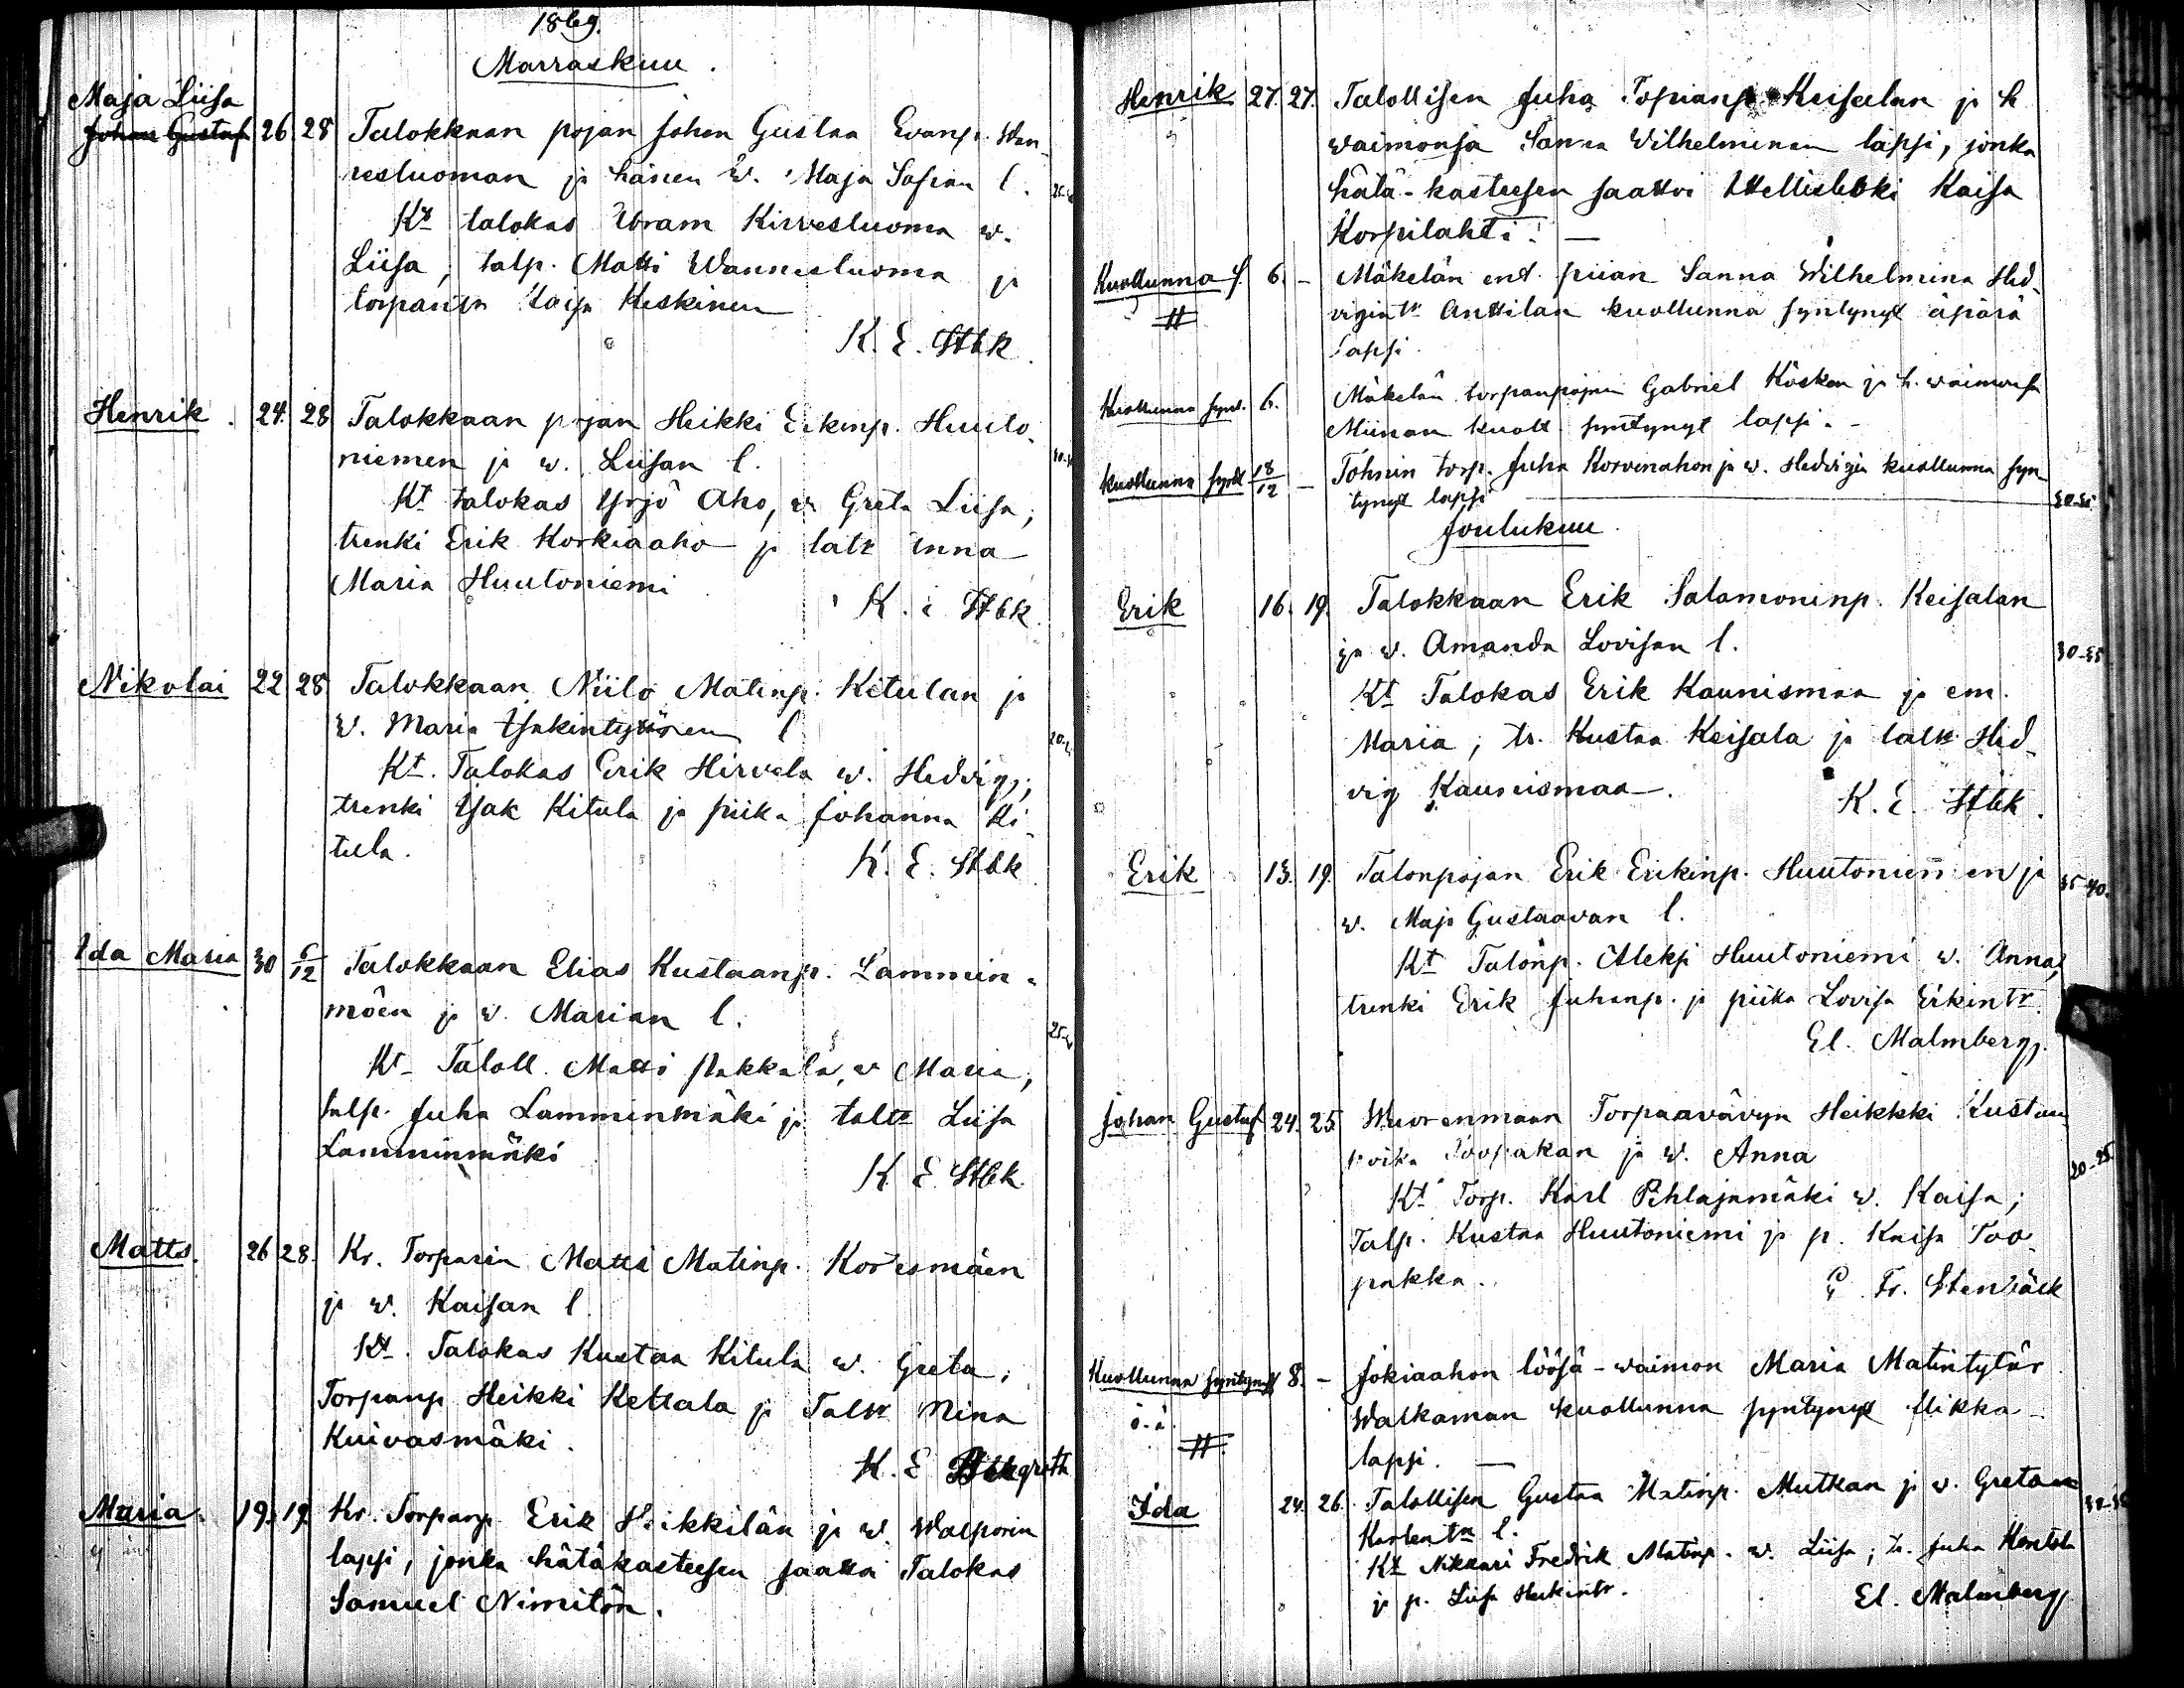 1869.
Marraskuu.
Maja Liisa
Johan Gustaf 26 28 Talokkaan pojan Johan Gustaa Evanp. Wan-
nesluoman ja hänen w. Maja Sofian l.
Kt talokas Abram Kirvesluoma w.
Liisa, talp. Matti Wannesluoma ja
torparin Kaisa Keskinen
K. E. Stbk.
Henrik. 24. 28 Talokkaan pojan Heikki Erkinp. Huuto-
niemen ja w. Liisan l.
Kt talokas Yrjö Aho, w. Greta Liisa,
trenki Erik Korkiaaho ja taltr Anna
Maria Huutoniemi
K. E. Stbk.
Nikolai 22 28 Talokkaan Niilo Matinp. Kitulan ja
w. Maria Isakintyttären l
Kt. Talokas Erik Hirvela w. Hedvig,
trenki Isak Kitula ja piika Johanna Ki-
tula.
K. E. Stbk
Ida Maria 30 6/12 Talokkaan Elias Kustaanp. Lammin-
mäen ja w. Marian l.
Kt Taloll. Matti Pakkala, w Maria,
talp. Juha Lamminmäki ja taltr Liisa
Lamminmäki
K E Stbk.
Matts. 26 28. Kr. Torparin Matti Matinp. Koresmäen
ja w. Kaisan l
Kt. Talokas Kustaa Kitula w. Greta,
Torpanp Heikki Kettala ja Taltr Mina
Kuivasmäki.
K. E
Maria. 19. 19 Kr. Torpanp. Erik Heikkilän ja w. Walporin
lapsi, jonka hätäkasteesen saattoi Talokas
Samuel Nimitön.
Henrik 27. 27. Talollisen Juha Topianp. Keisalan ja h
waimonsa Sanna Wilhelminan lapsi, jonka
hätä-kasteesen saattoi Itelliisleski Kaisa
Korpilahti. —
Kuollunna s. 6. – Mäkelän ent. piian Sanna Wilhelmina Hed-
vigintr Anttilan kuollunna syntynyt äpärä
lapsi.
Kuollunna synt. 6. Mäkelän torpanpojan Gabriel Kosken ja h. waimonsa
Miinan kuoll. syntynyt lapsi. –
kuollunna synt 18/12 – Töhnin torp. Juha Korvenahon ja w. Hedvigin kuollunna syn-
tynyt lapsi
30-35
Joulukuu.
Erik 16. 19. Talokkaan Erik Salomoninp. Keisalan
ja w. Amanda Lovisan l.
30-35
Kt Talokas Erik Kaunismaa ja em.
Maria, tr. Kustaa Keisala ja taltr Hed-
vig Kaunismaa.
K. E. Stbk.
Erik 13. 19. Talonpojan Erik Erikinp. Huutoniemen ja
35-40.
w. Maja Gustaavan l.
Kt Talonp. Aleksi Huutoniemi w. Anna,
trenki Erik Juhanp. ja piika Lovisa Erkintr.
El. Malmberg.
Johan Gustaf 24. 25 Wuorenmaan Torpaavävyn Heikkki Kustaa
Toopakan ja w. Anna
20-25
Kt Torp. Karl Pihlajamäki w. Kaisa,
Talp. Kustaa Huutoniemi ja p. Kaisa Too-
pakka.
Fr. Stenbäck
Kuollunna syntynyt 8. – Jokiaahon löösä-waimon Maria Matintytär
ö.ä. Walkaman kuollunna syntynyt flikka
lapsi. —
Ida 24. 26. Talollisen Gustaa Matinp. Mutkan ja w. Gretan
Karlentr l.
Kt Nikkari Fredrik Matinp. w. Liisa, tr. Juha Hantola
ja p. Liisa Heikintr.
El. Malmberg